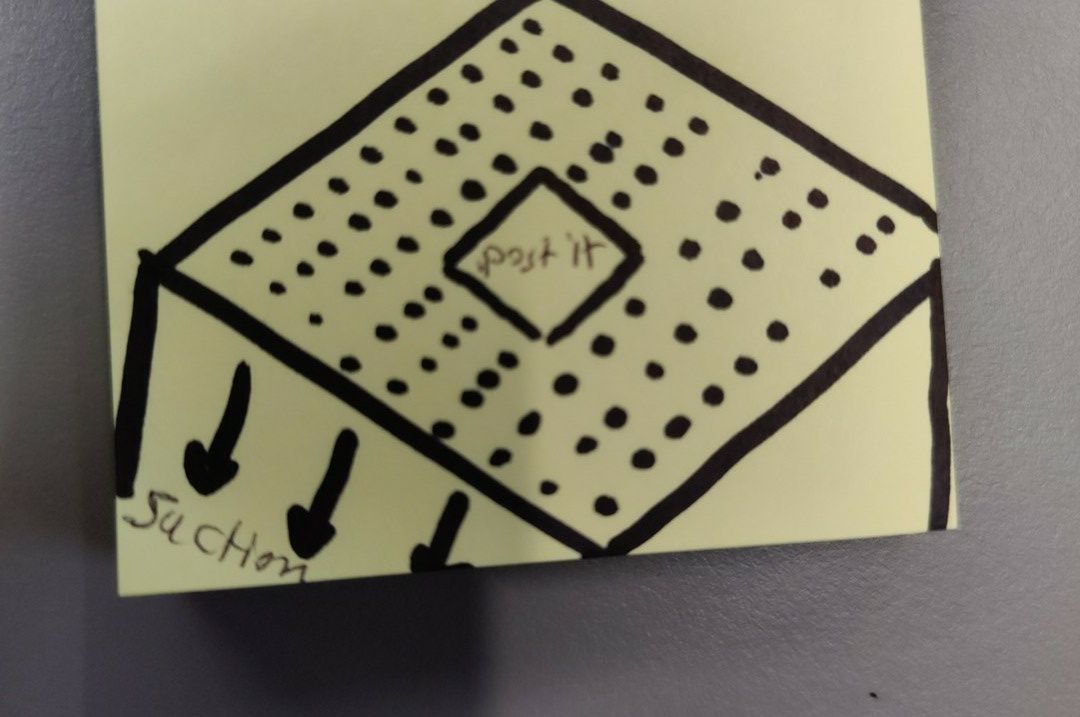 post it
Suction